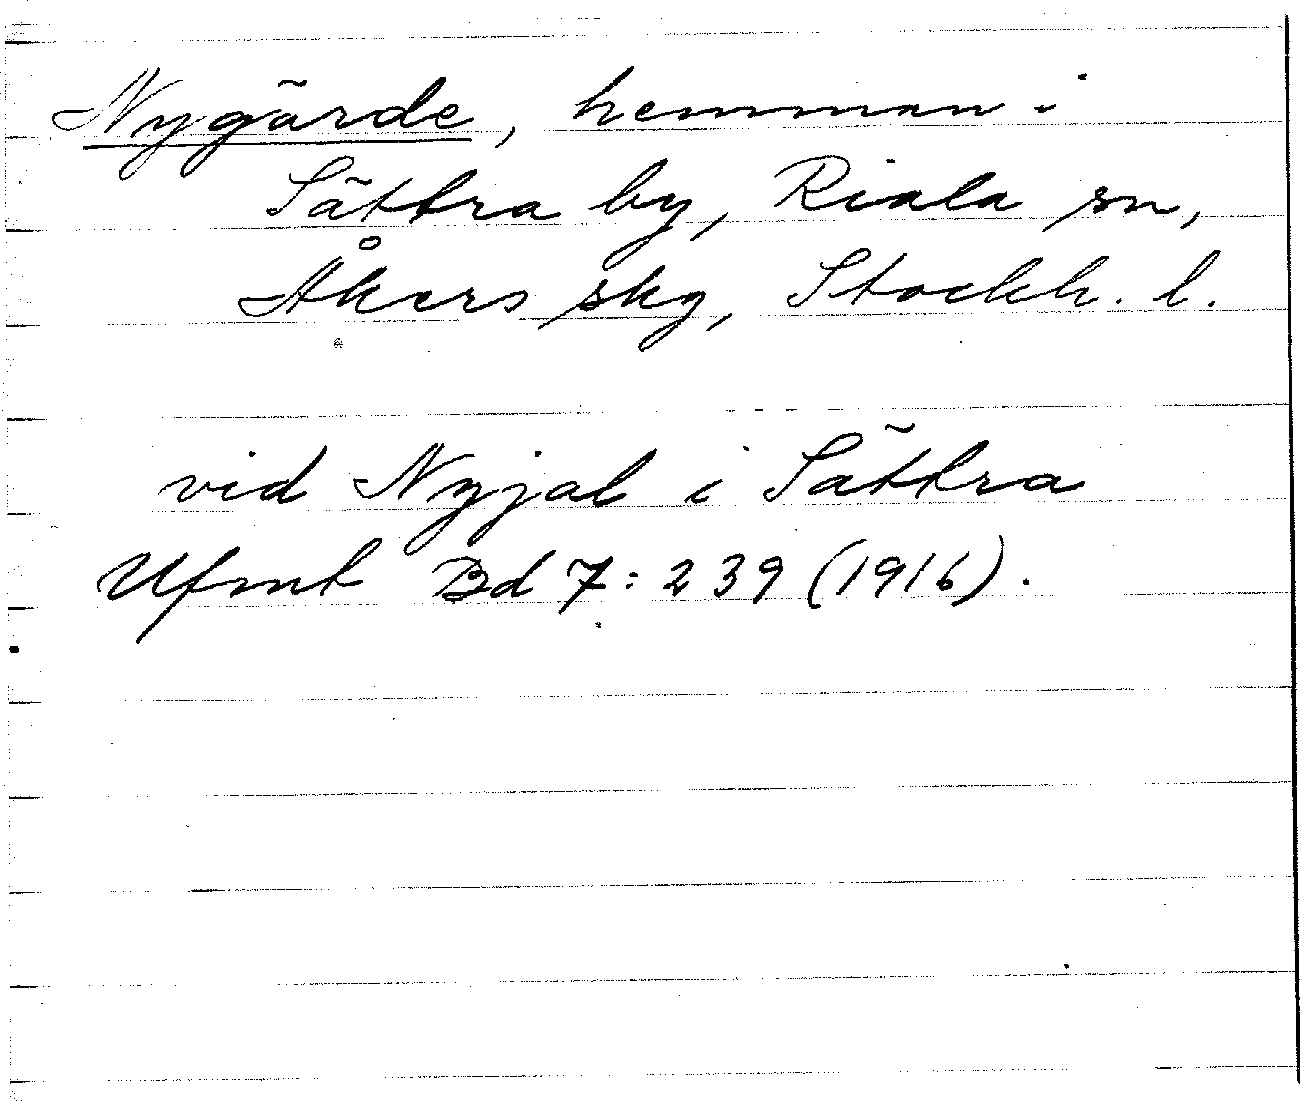 Nygärde, hemman i
Sättra by, Riala sn,
Åkers skg, Stockh. l.
vid Nyjal i Sättra
Ufmt Bd 7:239 (1916).